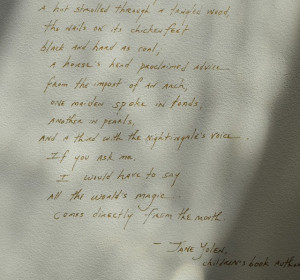 A hut strolled through a tangled wood,
the nails on its chicken feet
black and hard as coal,
a horse's head proclaimed advice
from the impost of an arch,
one maiden spoke in toads,
another in pearls,
and a third with the nightingale's voice
If you ask me
I would have to say
all the world's magic
comes directly from the mouth
- JANE YOLEN,
children's book author